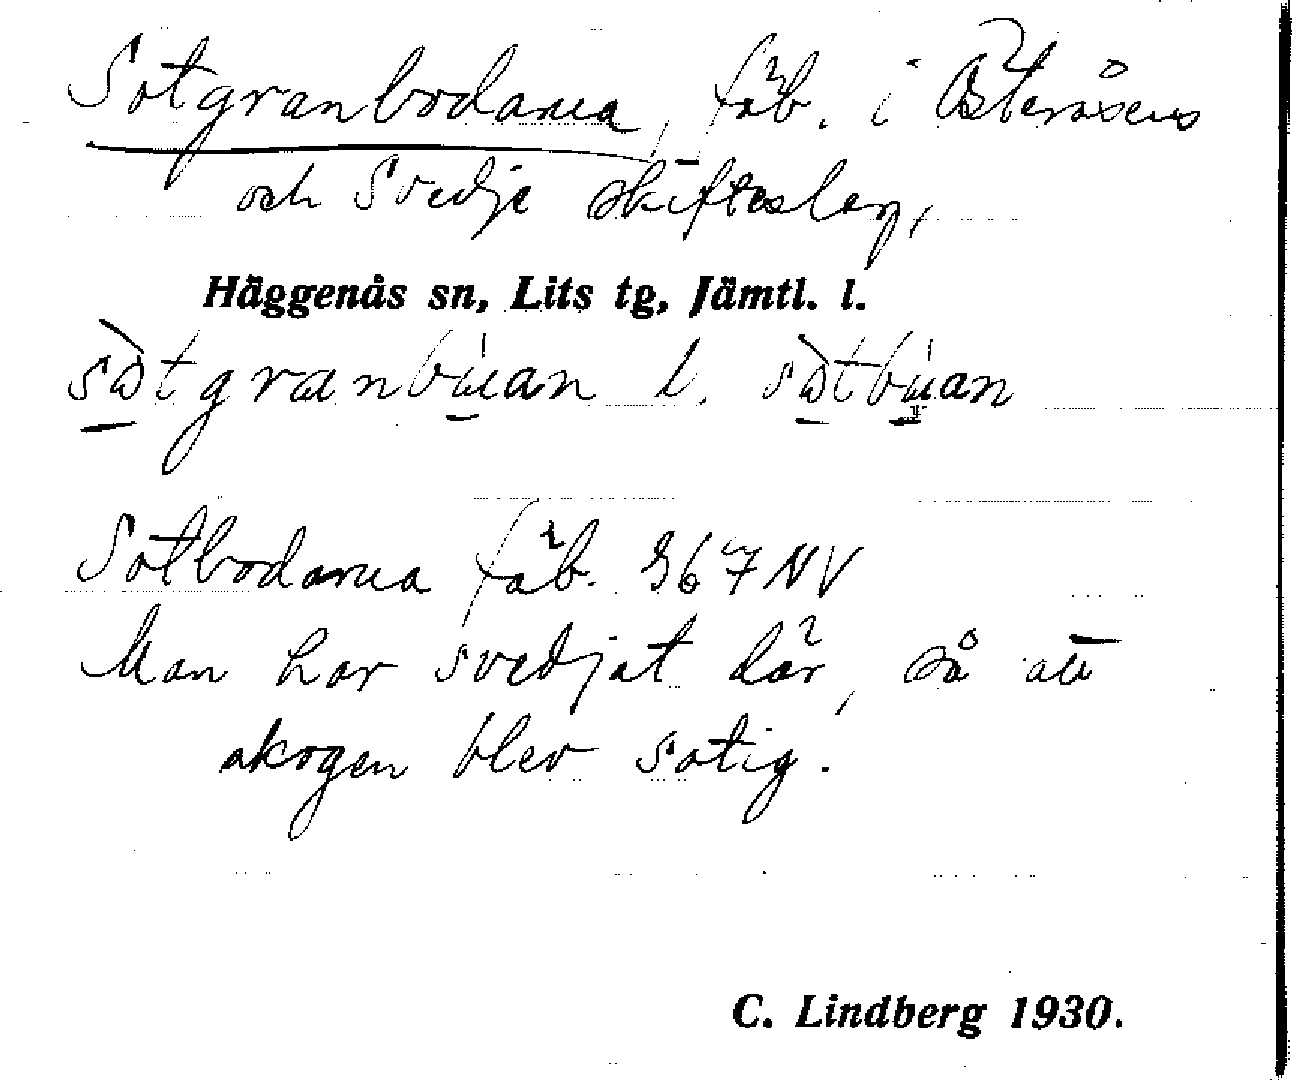 Sotgranbodarna, fäb. i Österåsens
och Svedje skifteslag,
Häggenås sn, Lits tg, Jämtl. l.
sòtgranbúan l. sòtbúan
Sotbodarna fäb. 367 NV
Man har svedjat där, så att
skogen blev sotig.
C. Lindberg 1930.